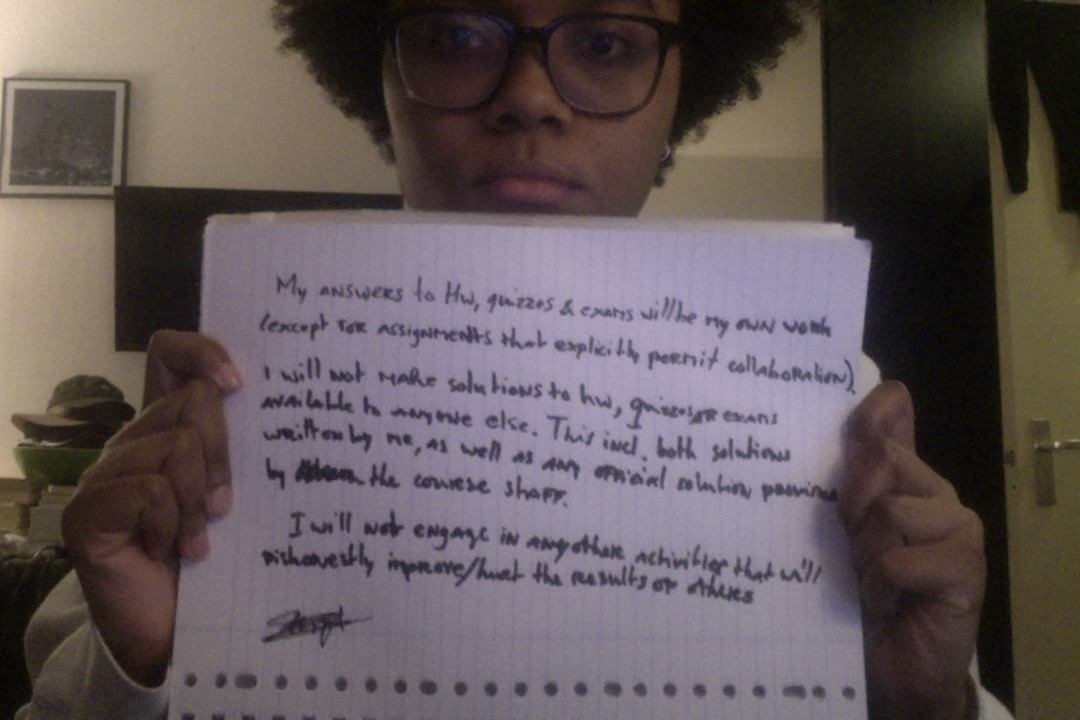 My answers to Hw, quizzes & exams will be my own work
(except for assignments that explicitly permit collaboration).
I will not make solutions to hw, quizzes or exams
available to anyone else. This incl. both solutions
written by me, as well as any official solution
by the course staff.
I will not engage in any other activities that will
dishonestly improve/hurt the results of others